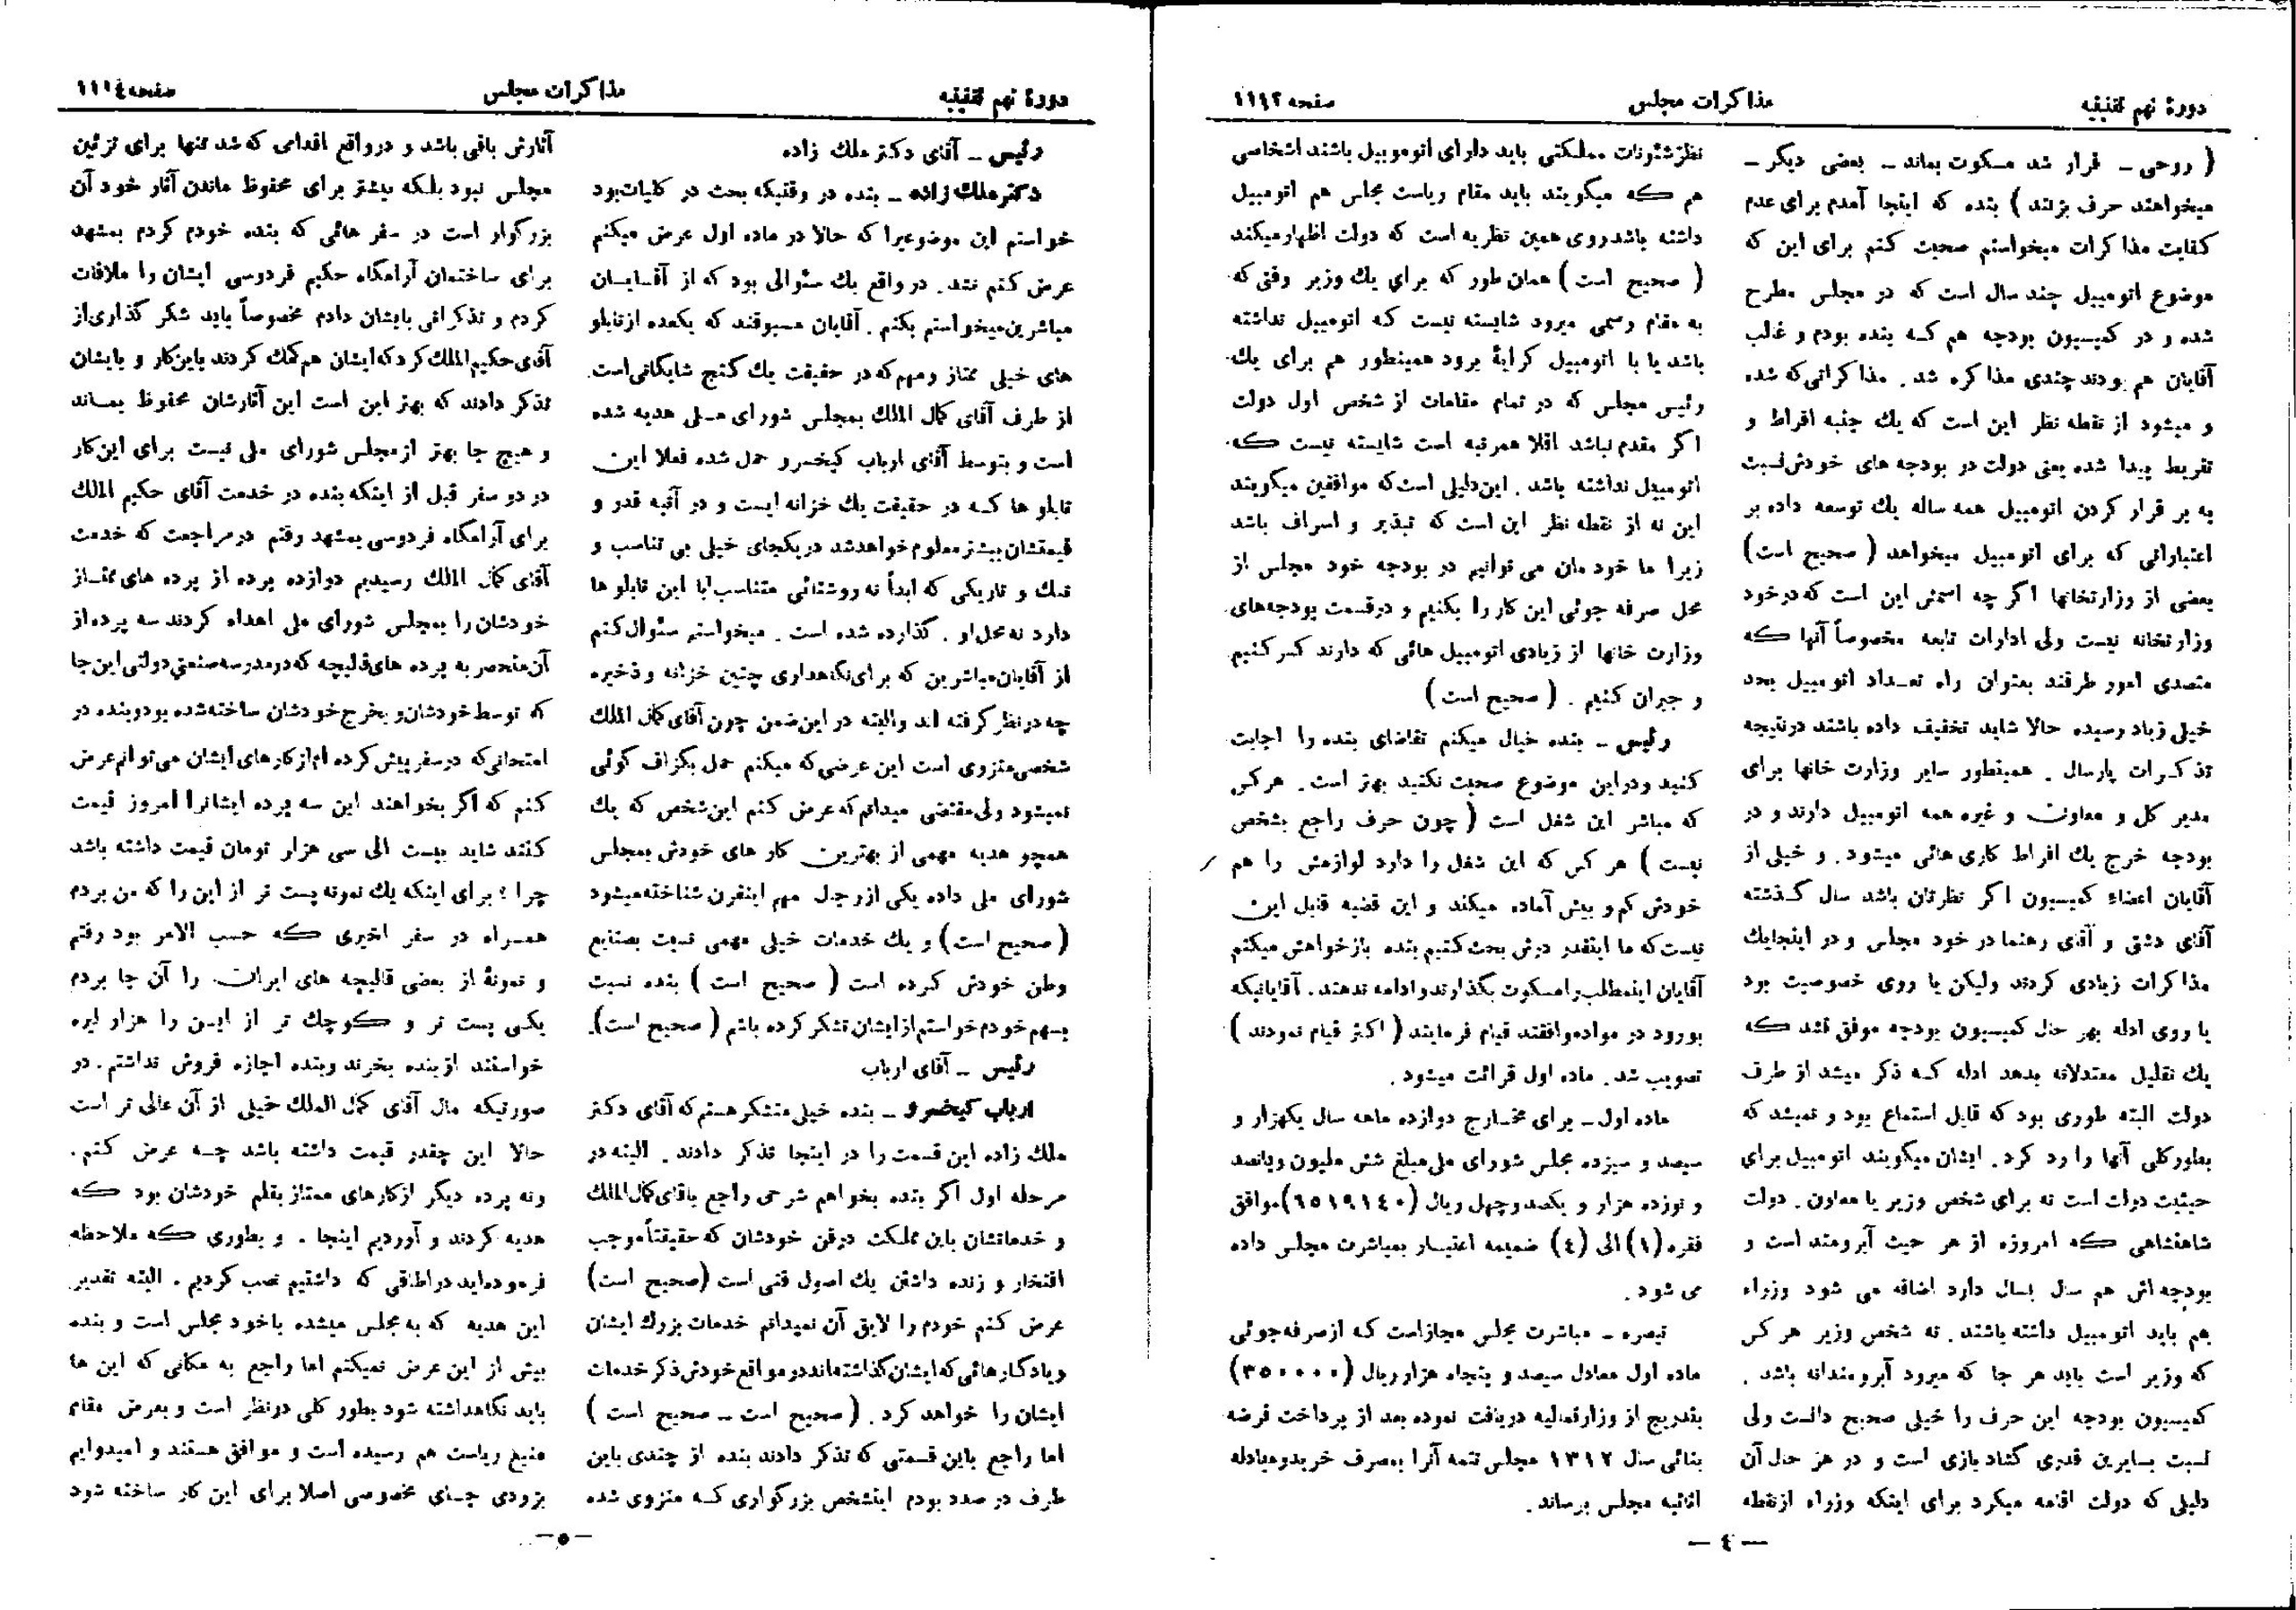 دورهٔ نهم تقنینیه
مذاکرات مجلس
صفحه ۱۱۴۳
( روحی ـ قرار شد مسکوت بماند ـ بعضی دیگر ـ
میخواهند حرف بزنند ) بنده که اینجا آمدم برای عدم
کفایت مذاکرات میخواستم صحبت کنم برای این که
موضوع اتومبیل چند سال است که در مجلس مطرح
شده و در کمیسیون بودجه هم که بنده بودم و غالب
آقایان هم بودند چندی مذاکره شد . مذاکراتی که شده
و میشود از نقطه نظر این است که یك جنبه افراط و
تفریط پیدا شده یعنی دولت در بودجه های خودش نسبت
به بر قرار کردن اتومبیل همه ساله یك توسعه داده بر
اعتباراتی که برای اتومبیل میخواهد ( صحیح است )
بعضی از وزارتخانها اگر چه اسمش این است که در خود
وزارتخانه نیست ولی ادارات تابعه مخصوصاً آنها که
متصدی امور طرقند بعنوان راه تعداد اتومبیل بحد
خیلی زیاد رسیده حالا شاید تخفیف داده باشند در نتیجه
تذکرات پارسال . همینطور سایر وزارت خانها برای
مدیر کل و معاون و غیره همه اتومبیل دارند و در
بودجه خرج یك افراط کاری هائی میشود . و خیلی از
آقایان اعضاء کمیسیون اگر نظرتان باشد سال گذشته
آقای دشتی و آقای رهنما در خود مجلس و در اینجا یك
مذاکرات زیادی کردند ولیکن یا روی خصوصیت بود
یا روی ادله بهر حال کمیسیون بودجه موفق نشد که
یك تقلیل معتدلانه بدهد ادله که ذکر میشد از طرف
دولت البته طوری بود که قابل استماع بود و نمیشد که
بطور کلی آنها را رد کرد . ایشان میگویند اتومبیل برای
حیثیت دولت است نه برای شخص وزیر یا معاون . دولت
شاهنشاهی که امروزه از هر حیث آبرومند است و
بودجه اش هم سال بسال دارد اضافه می شود وزراء
هم باید اتومبیل داشته باشند . نه شخص وزیر هر کس
که وزیر است باید هر جا که میرود آبرومندانه باشد .
کمیسیون بودجه این حرف را خیلی صحیح دانست ولی
نسبت بسایرین قدری گشاد بازی است و در هر حال آن
دلیلی که دولت اقامه میکرد برای اینکه وزراء از نقطه
نظر شئونات مملکتی باید دارای اتوموبیل باشند اشخاصی
هم که میگویند باید مقام ریاست مجلس هم اتومبیل
داشته باشد روی همین نظریه است که دولت اظهار میکند
( صحیح است ) همان طور که برای یك وزیر وقتی که
به مقام رسمی میرود شایسته نیست که اتومبیل نداشته
باشد یا با اتومبیل کرایهٔ برود همینطور هم برای یك
رئیس مجلس که در تمام مقامات از شخص اول دولت
اگر مقدم نباشد اقلا همرتبه است شایسته نیست که
اتومبیل نداشته باشد . این دلیلی است که موافقین میگویند
این نه از نقطه نظر این است که تبذیر و اسراف باشد
زیرا ما خودمان می توانیم در بودجه خود مجلس از
محل صرفه جوئی این کار را بکنیم و در قسمت بودجه های
وزارت خانها از زیادی اتومبیل هائی که دارند کسر کنیم
و جبران کنیم . ( صحیح است )
رئیس ـ بنده خیال میکنم تقاضای بنده را اجابت
کنید و در این موضوع صحبت نکنید بهتر است . هر کس
که مباشر این شغل است ( چون حرف راجع بشخص
نیست ) هر کس که این شغل را دارد لوازمش را هم
خودش کم و بیش آماده میکند و این قضیه قابل این
نیست که ما اینقدر درش بحث کنیم بنده باز خواهش میکنم
آقایان اینمطلب را مسکوت بگذارند و ادامه ندهند . آقایانیکه
بورود در مواد موافقند قیام فرمایند ( اکثر قیام نمودند )
تصویب شد . ماده اول قرائت میشود .
ماده اول ـ برای مخارج دوازده ماهه سال یکهزار و
سیصد و سیزده مجلس شورای ملی مبلغ شش ملیون و پانصد
و نوزده هزار و یکصد و چهل ریال (۶۵۱۹۱۴۰) موافق
فقره (۱) الی (٤) ضمیمه اعتبار بمباشرت مجلس داده
می شود .
تبصره ـ مباشرت مجلس مجاز است که از صرفه جوئی
ماده اول معادل سیصد و پنجاه هزار ریال (۳۵۰۰۰۰)
بتدریج از وزارت مالیه دریافت نموده بعد از پرداخت قرضه
بنائی سال ۱۳۱۲ مجلس تتمه آنرا بمصرف خرید و مبادله
اثاثیه مجلس برساند .
ـ ٤ ـ
دورهٔ نهم تقنینیه
مذاکرات مجلس
صفحه ۱۱۱٤
رئیس ـ آقای دکتر ملك زاده
دکتر ملك زاده ـ بنده در وقتیکه بحث در کلیات بود
خواستم این موضوعیرا که حالا در ماده اول عرض میکنم
عرض کنم نشد . در واقع یك سئوالی بود که از آقایان
مباشرین میخواستم بکنم . آقایان مسبوقند که یکعده از تابلو
های خیلی ممتاز و مهم که در حقیقت یك گنج شایگانی است
از طرف آقای کمال الملك بمجلس شورای ملی هدیه شده
است و بتوسط آقای ارباب کیخسرو حمل شده فعلا این
تابلو ها که در حقیقت یك خزانه ایست و در آتیه قدر و
قیمتشان بیشتر معلوم خواهد شد در یکجای خیلی بی تناسب و
تنك و تاریکی که ابداً نه روشنائی متناسب با این تابلو ها
دارد نه محل او . گذارده شده است . میخواستم سئوال کنم
از آقایان مباشرین که برای نگاهداری چنین خزانه و ذخیره
چه در نظر گرفته اند والبته در این ضمن چون آقای کمال الملك
شخصی منزوی است این عرضی که میکنم حمل بگزاف گوئی
نمیشود ولی مقتضی میدانم که عرض کنم این شخص که یك
همچو هدیه مهمی از بهترین کار های خودش بمجلس
شورای ملی داده یکی از رجال مهم اینقرن شناخته میشود
( صحیح است ) و یك خدمات خیلی مهمی نسبت بصنایع
وطن خودش کرده است ( صحیح است ) بنده نسبت
بسهم خودم خواستم از ایشان تشکر کرده باشم ( صحیح است ) .
رئیس ـ آقای ارباب
ارباب کیخسرو ـ بنده خیلی متشکر هستم که آقای دکتر
ملك زاده این قسمت را در اینجا تذکر دادند . البته در
مرحله اول اگر بنده بخواهم شرحی راجع بآقای کمال الملك
و خدماتشان باین مملکت در فن خودشان که حقیقتاً موجب
افتخار و زنده داشتن یك اصول فنی است (صحیح است)
عرض کنم خودم را لایق آن نمیدانم خدمات بزرك ایشان
و یادگار هائی که ایشان گذاشته اند در مواقع خودش ذکر خدمات
ایشان را خواهد کرد . ( صحیح است ـ صحیح است )
اما راجع باین قسمتی که تذکر دادند بنده از چندی باین
طرف در صدد بودم اینشخص بزرگواری که منزوی شده
آثارش باقی باشد و در واقع اقدامی که شد تنها برای تزئین
مجلس نبود بلکه بیشتر برای محفوظ ماندن آثار خود آن
بزرگوار است در سفر هائی که بنده خودم کردم بمشهد
برای ساختمان آرامگاه حکیم فردوسی ایشان را ملاقات
کردم و تذکراتی بایشان دادم مخصوصاً باید شکر گذاری از
آقای حکیم الملك کرد که ایشان هم کمك کردند باین کار و بایشان
تذکر دادند که بهتر این است این آثارشان محفوظ بماند
و هیچ جا بهتر از مجلس شورای ملی نیست برای این کار
در دو سفر قبل از اینکه بنده در خدمت آقای حکیم الملك
برای آرامگاه فردوسی بمشهد رفتم در مراجعت که خدمت
آقای کمال الملك رسیدیم دوازده پرده از پرده های ممتاز
خودشان را بمجلس شورای ملی اهداء کردند سه پرده از
آن منحصر به پرده های قالیچه که در مدرسه صنعتی دولتی این جا
که توسط خودشان و بخرج خودشان ساخته شده بود و بنده در
امتحانی که در سفر پیش کرده ام از کار های ایشان می توانم عرض
کنم که اگر بخواهند این سه پرده ایشانرا امروز قیمت
کنند شاید بیست الی سی هزار تومان قیمت داشته باشد
چرا ؟ برای اینکه یك نمونه پست تر از این را که من بردم
همراه در سفر اخیری که حسب الامر بود رفتم
و نمونهٔ از بعضی قالیچه های ایران را آن جا بردم
یکی پست تر و کوچك تر از این را هزار لیره
خواستند از بنده بخرند وبنده اجازه فروش نداشتم . در
صورتیکه مال آقای کمال الملك خیلی از آن عالی تر است
حالا این چقدر قیمت داشته باشد چه عرض کنم .
ونه پرده دیگر از کارهای ممتاز بقلم خودشان بود که
هدیه کردند و آوردیم اینجا . و بطوری که ملاحظه
فرموده اید در اطاقی که داشتیم نصب کردیم . البته تقدیر
این هدیه که به مجلس میشده با خود مجلس است و بنده
بیش از این عرض نمیکنم اما راجع به مکانی که این ها
باید نگاهداشته شود بطور کلی در نظر است و بعرض مقام
منیع ریاست هم رسیده است و موافق هستند و امیدواریم
بزودی جای مخصوصی اصلا برای این کار ساخته شود
ـ ٥ ـ